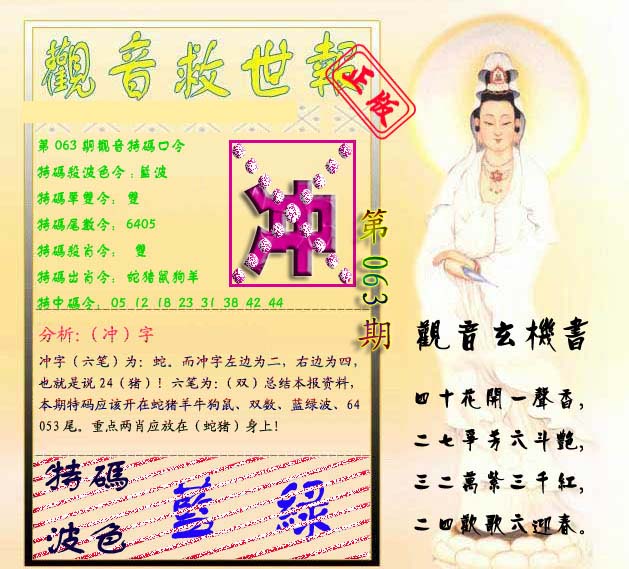 觀音救世報
正版
第063期觀音特碼口令
特碼殺波色令:藍波
特碼單雙令: 雙
特碼尾數令: 6405
特碼殺肖令: 雙
特碼出肖令: 蛇猪鼠狗羊
特中碼令: 05 12 18 23 31 38 42 44
冲
第063期
分析:(冲)字
冲字(六笔)为:蛇。而冲字左边为二,右边为四,
也就是说24(猪)!六笔为:(双)总结本报资料,
本期特码应该开在蛇猪羊牛狗鼠、双数、蓝绿波、64
053尾。重点两肖应放在(蛇猪)身上!
特碼
波色
藍 綠
觀音玄機書
四十花開一聲香,
二七爭芳六斗艷,
三二萬紫三千紅,
二四歡歌六迎春。